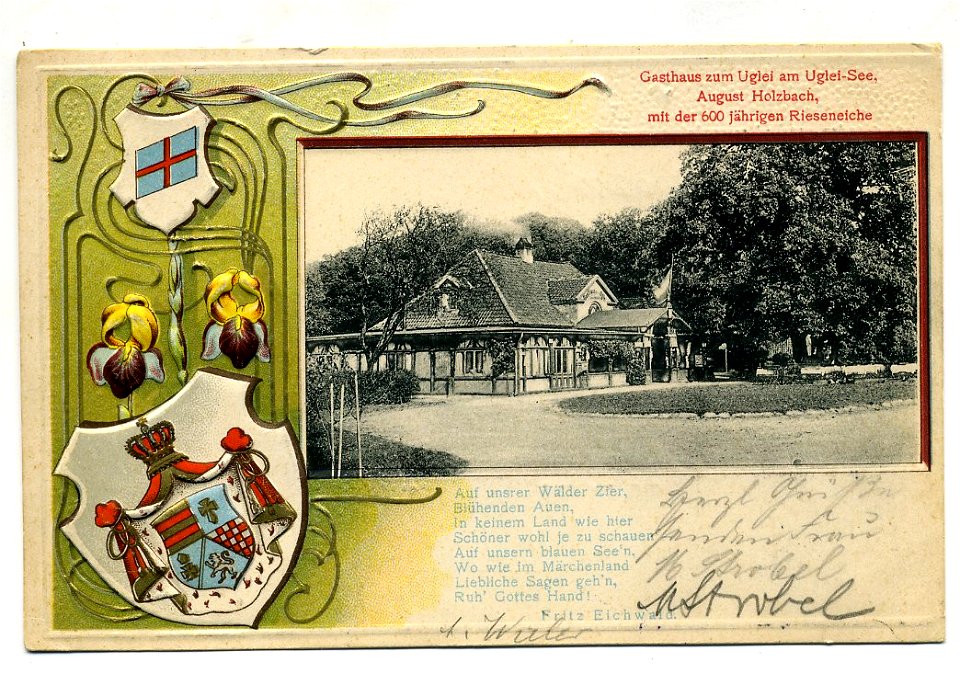 Gasthaus zum Uglei am Uglei-See,
August Holzbach,
mit der 600 jährigen Rieseneiche
Auf unsrer Wälder Zier,
Blühenden Auen,
In keinem Land wie hier
Schöner wohl je zu schauen
Auf unsern blauen See'n,
Wo wie im Märchenland
Liebliche Sagen geh'n,
Ruh' Gottes Hand!
Fritz Eichwald.
Herzl Grüße
senden Frau
M Strobel
MStrobel